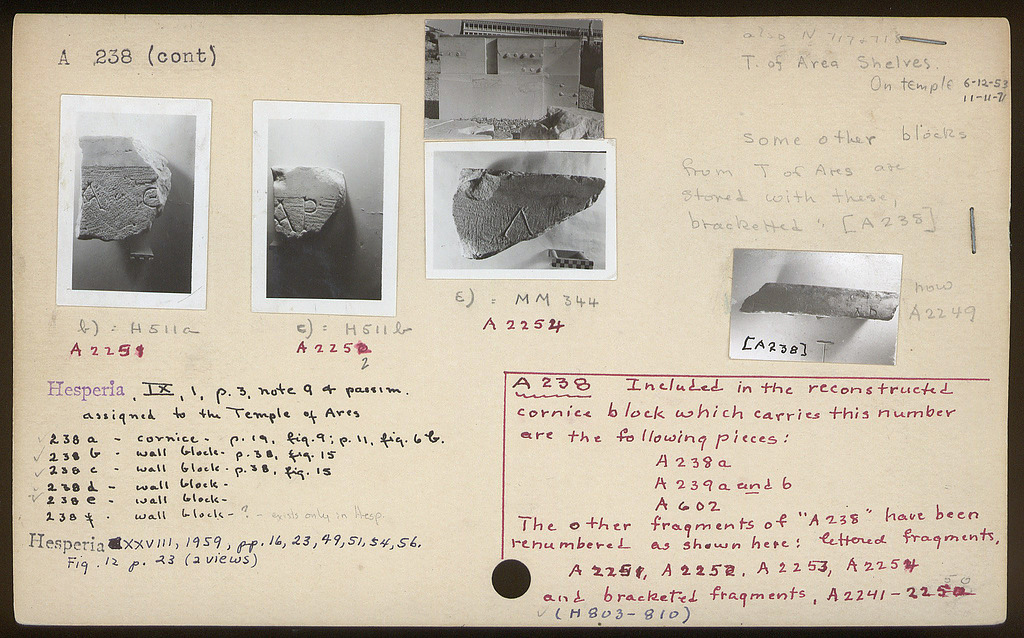 A 238 (cont)
also N 717, 718
T. of Area Shelves.
On temple 6-12-53
11-11-71
Some other blocks
from T of Ares are
stored with these,
bracketted : [A 238]
b) = H 511a
A 2251
c) = H 511b
A 2252
2
E) = MM 344
A 2254
now
A 2249
[A238] T
Hesperia, IX, 1, p. 3, note 9 & passim.
assigned to the Temple of Ares
238 a - cornice - p. 19, fig. 9; p. 11, fig. 6 b.
238 b - wall block - p. 38, fig. 15
238 c - wall block - p. 38, fig. 15
238 d - wall block -
238 e - wall block -
238 f - wall block - ? - exists only in Hesp.
Hesperia XXVIII, 1959, pp. 16, 23, 49, 51, 54, 56.
Fig. 12 p. 23 (2 views)
A 238 Included in the reconstructed
cornice block which carries this number
are the following pieces:
A 238a
A 239a and b
A 602
The other fragments of "A 238" have been
renumbered as shown here: lettered fragments,
A 2251, A 2252, A 2253, A 2254
and bracketed fragments, A 2241 - 2250
(H 803 - 810)